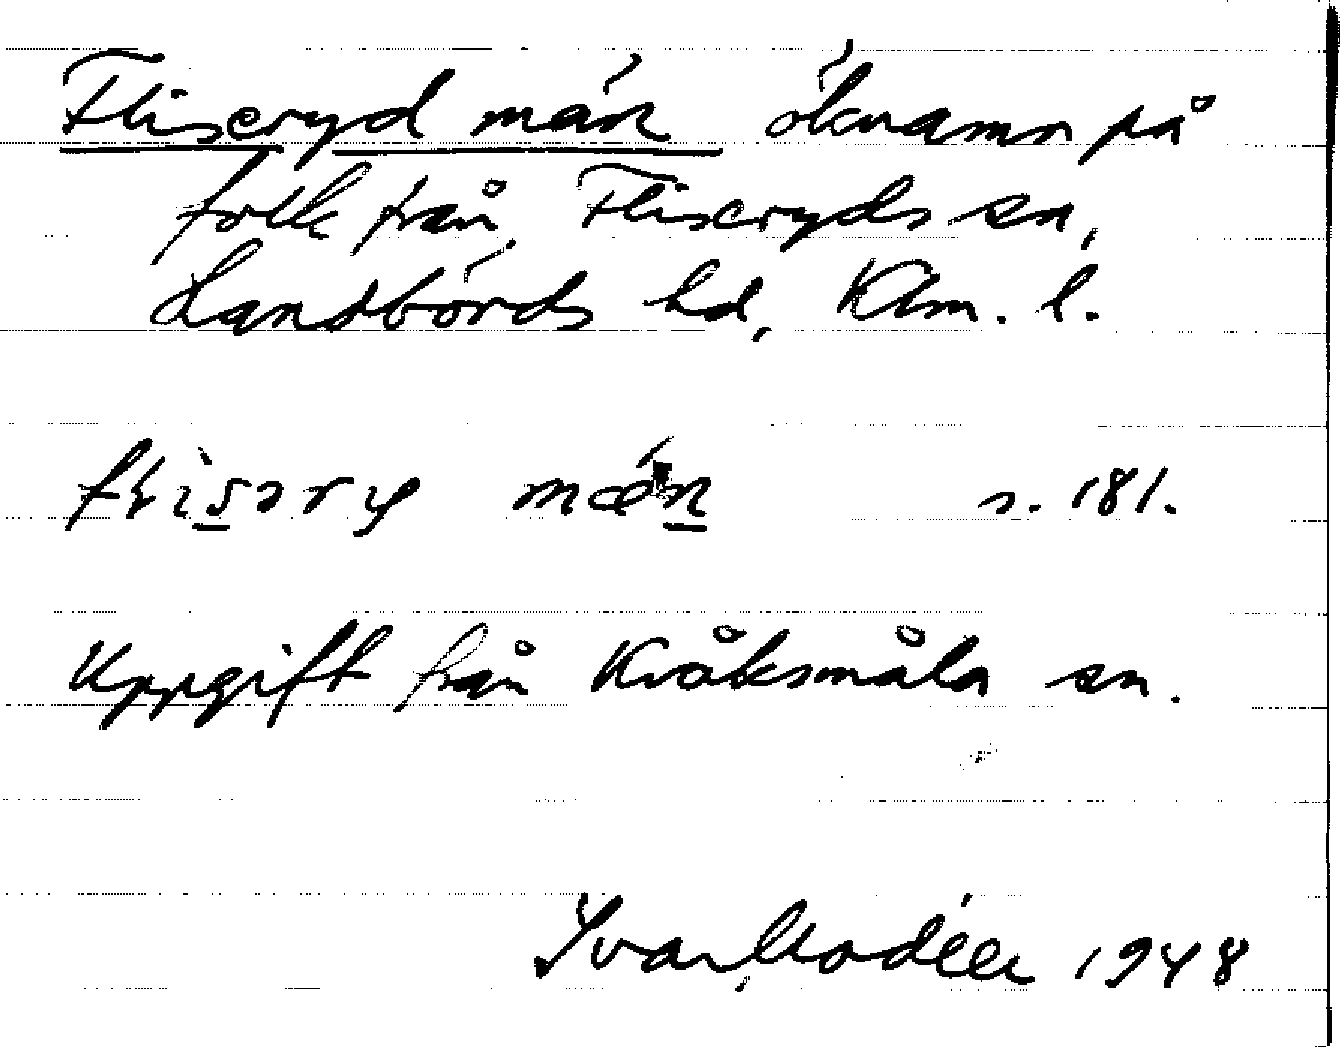 Fliseryd män öknamn på
folk från Fliseryds sn,
Handbörds hd, Klm. l.
s. 181.
Uppgift från Kråksmåla sn.
Ivar Modéer 1948